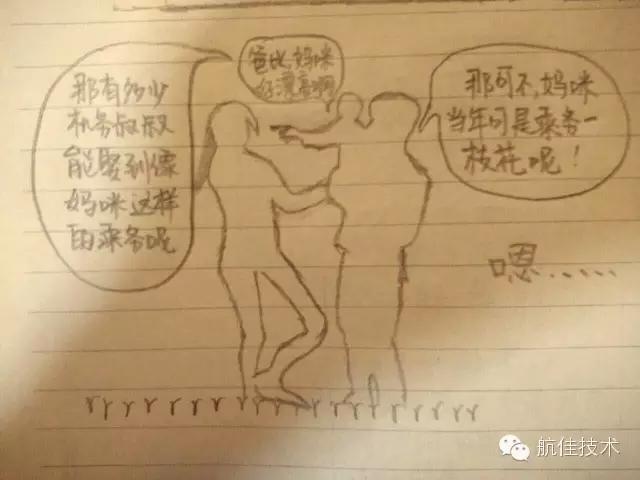 爸比,妈咪
好漂亮啊
那可不,妈咪
当年可是乘务一
枝花呢!
那有多少
机务叔叔
能娶到像
妈咪这样
的乘务呢
嗯......
航佳技术